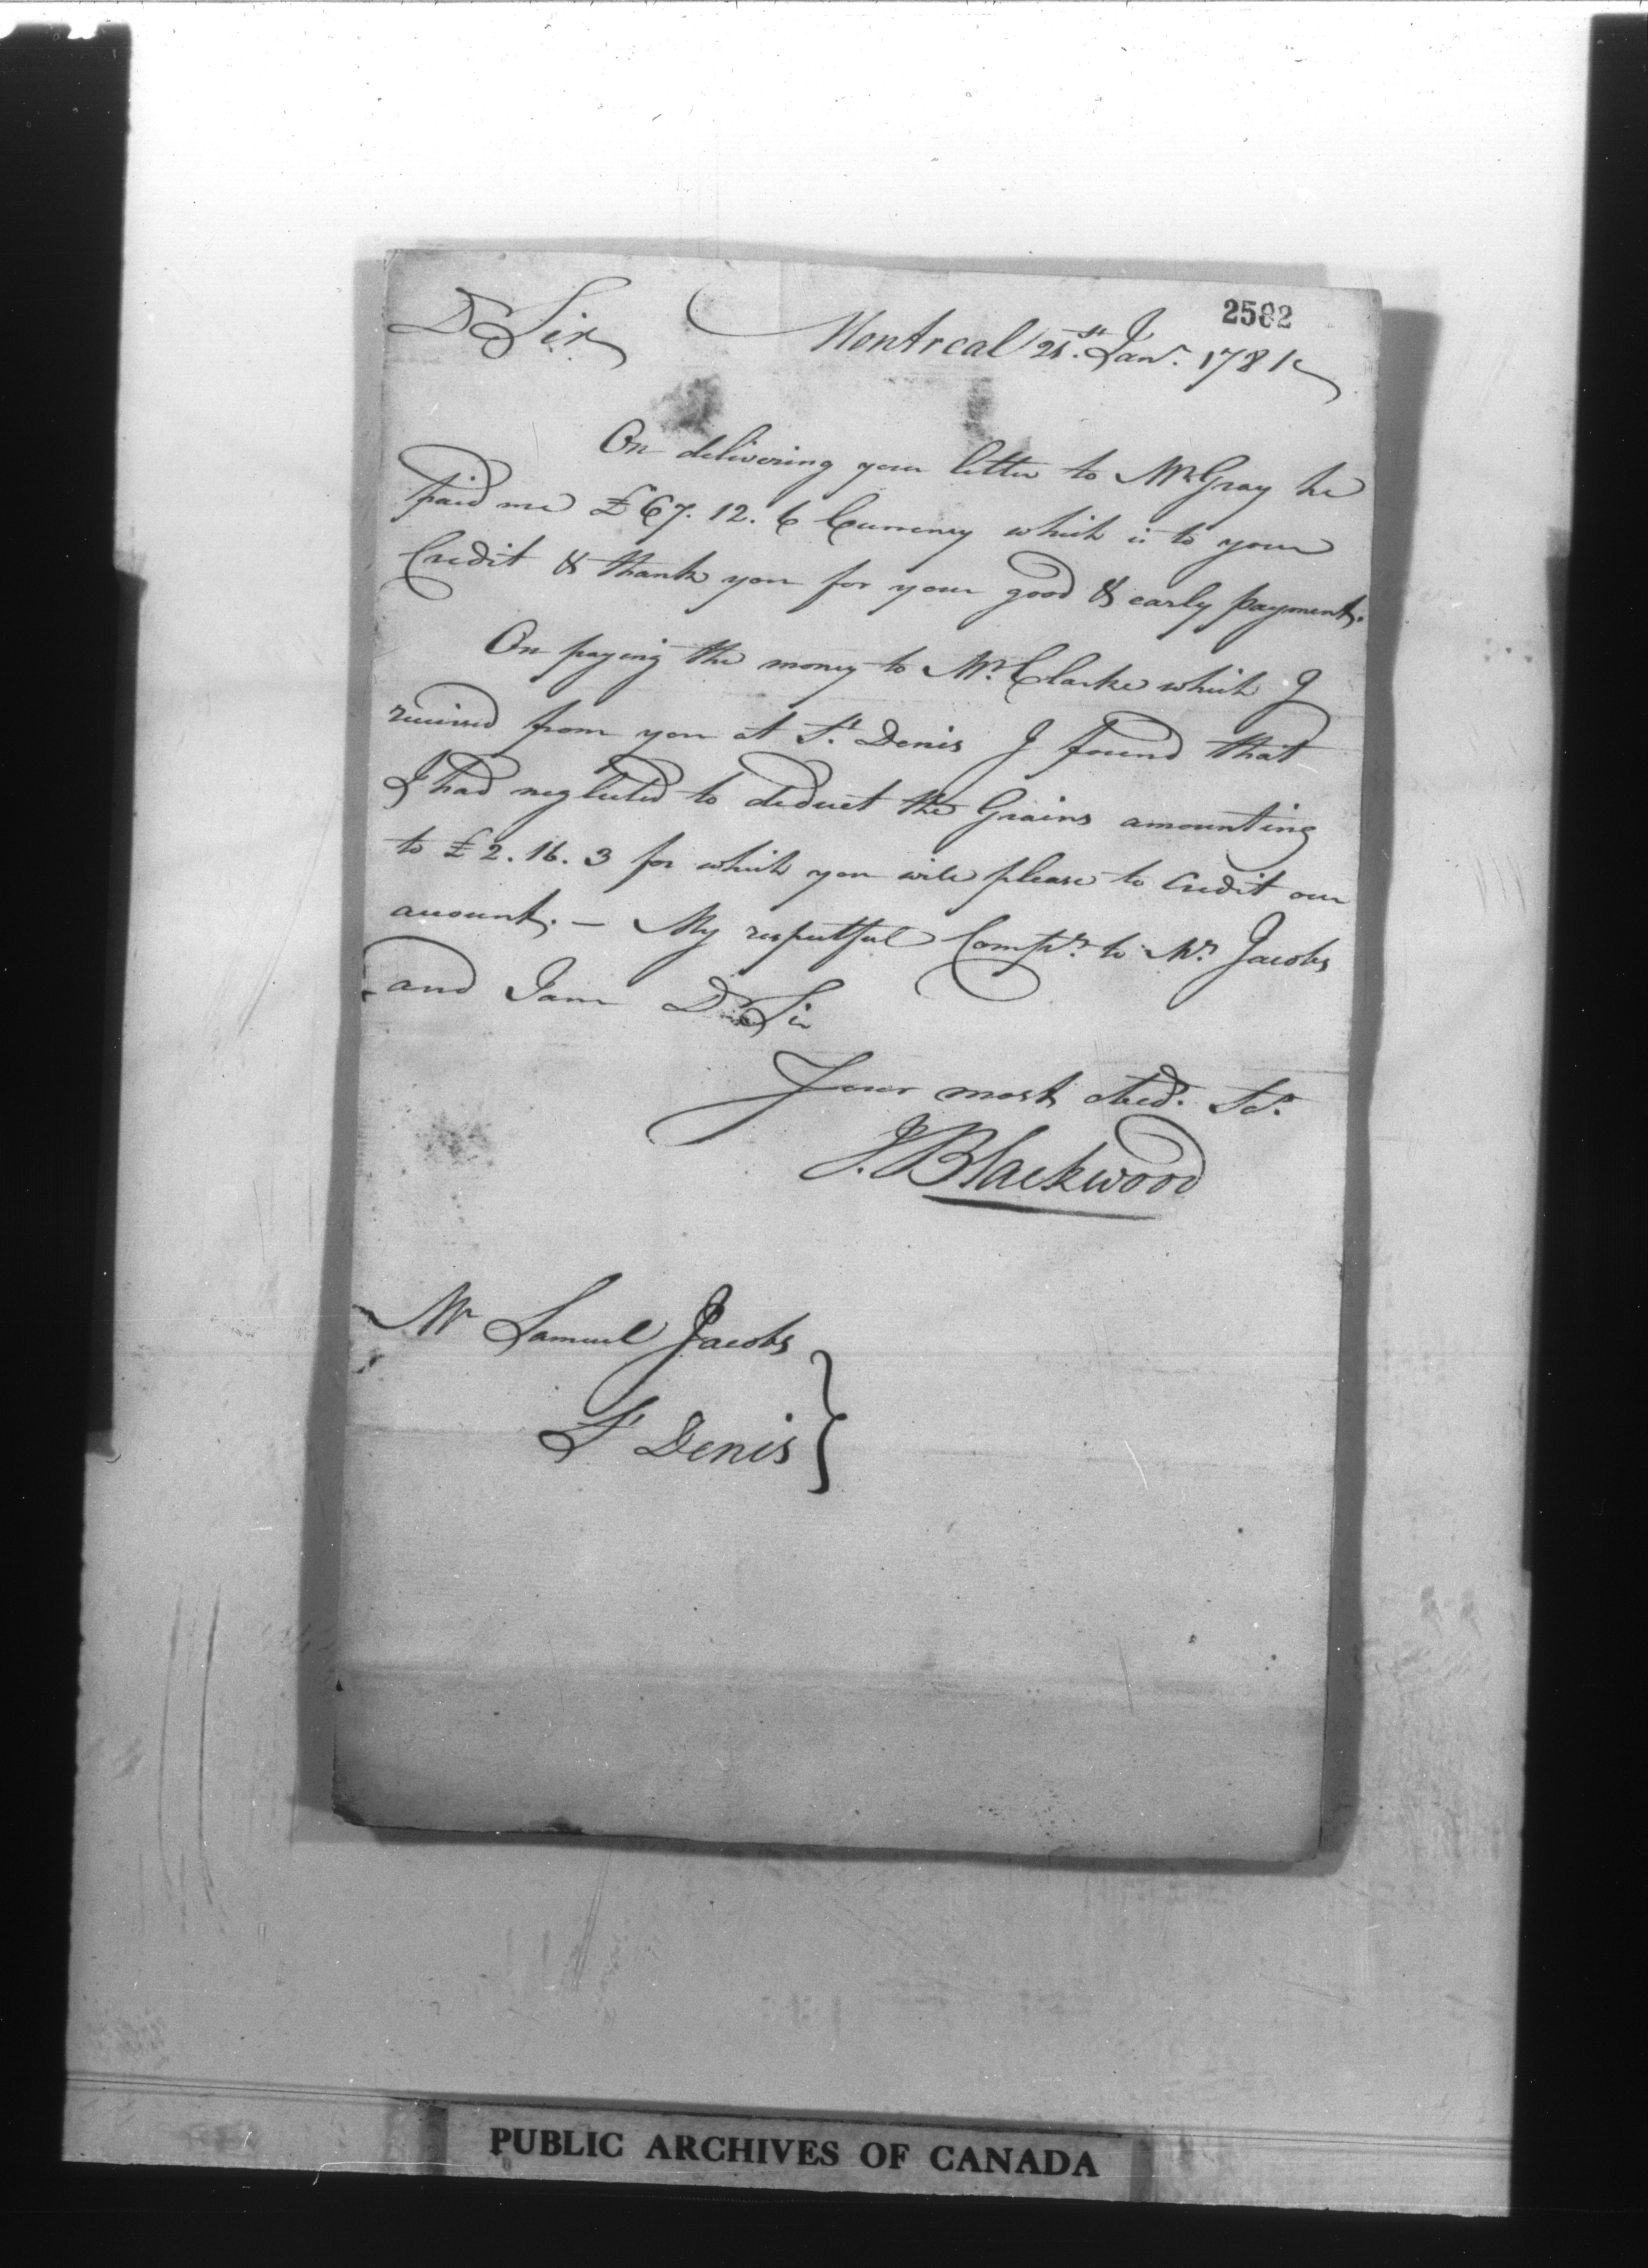 2582
Dr Sir Montreal 21st. Janr. 1781
On delivering your letter to Mr Gray he
paid me £67. 12. 6 Currency which is to your
Credit & thank you for your good & early payment.
On paying the money to Mr. Clarke which I
received from you at St. Denis I found that
I had neglected to deduct the Grains amounting
to £2. 16. 3 for which you will please to Credit our
account. — My respectful Compts. to Mrs. Jacobs
and I am Dr Sir
Your most obed. St.
J. Blackwood
Mr Samuel Jacobs
St Denis
PUBLIC ARCHIVES OF CANADA